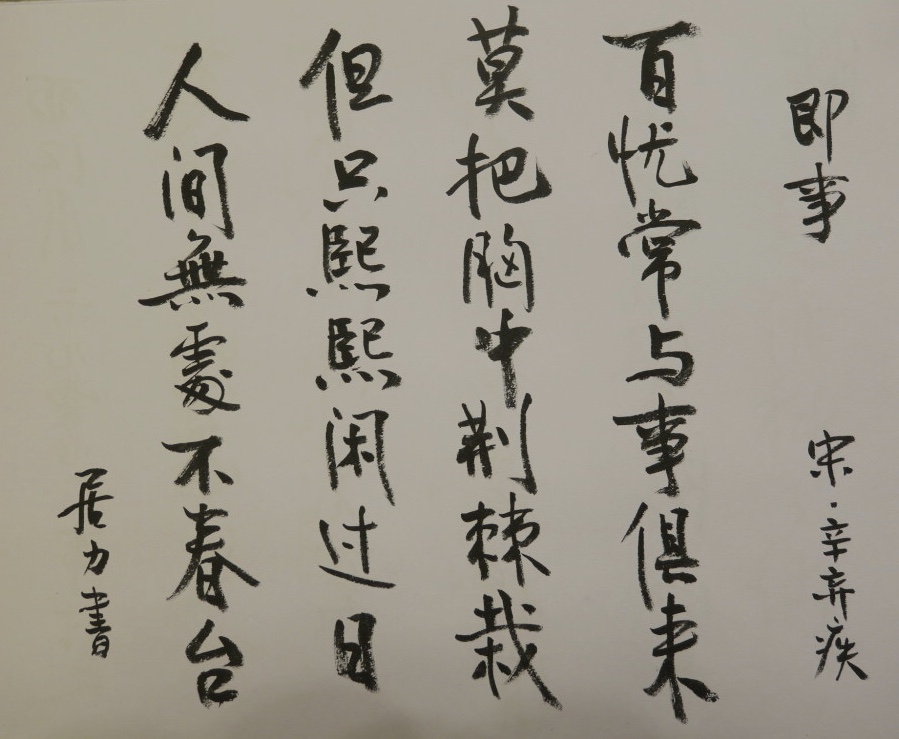 即事
宋·辛弃疾
百忧常与事俱来
莫把胸中荆棘栽
但只熙熙闲过日
人间無處不春台
居力書